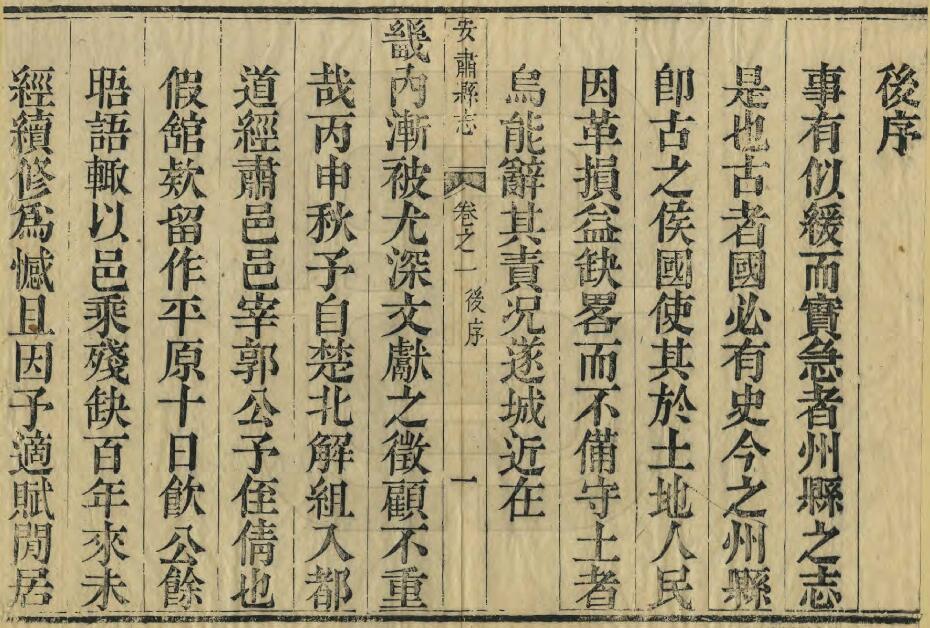 後序
事有似緩而實急者州縣之志
是也古者國必有史今之州縣
卽古之侯國使其於土地人民
因革損益缺畧而不備守土者
烏能辭其責况遂城近在
安肅縣志 卷之一 後序 一
畿內漸被尤深文獻之徵顧不重
哉丙申秋予自楚北解組入都
道經肅邑邑宰郭公予侄倩也
假舘欵留作平原十日飲公餘
晤語輙以邑乘殘缺百年來未
經續修爲憾且因予適賦閒居